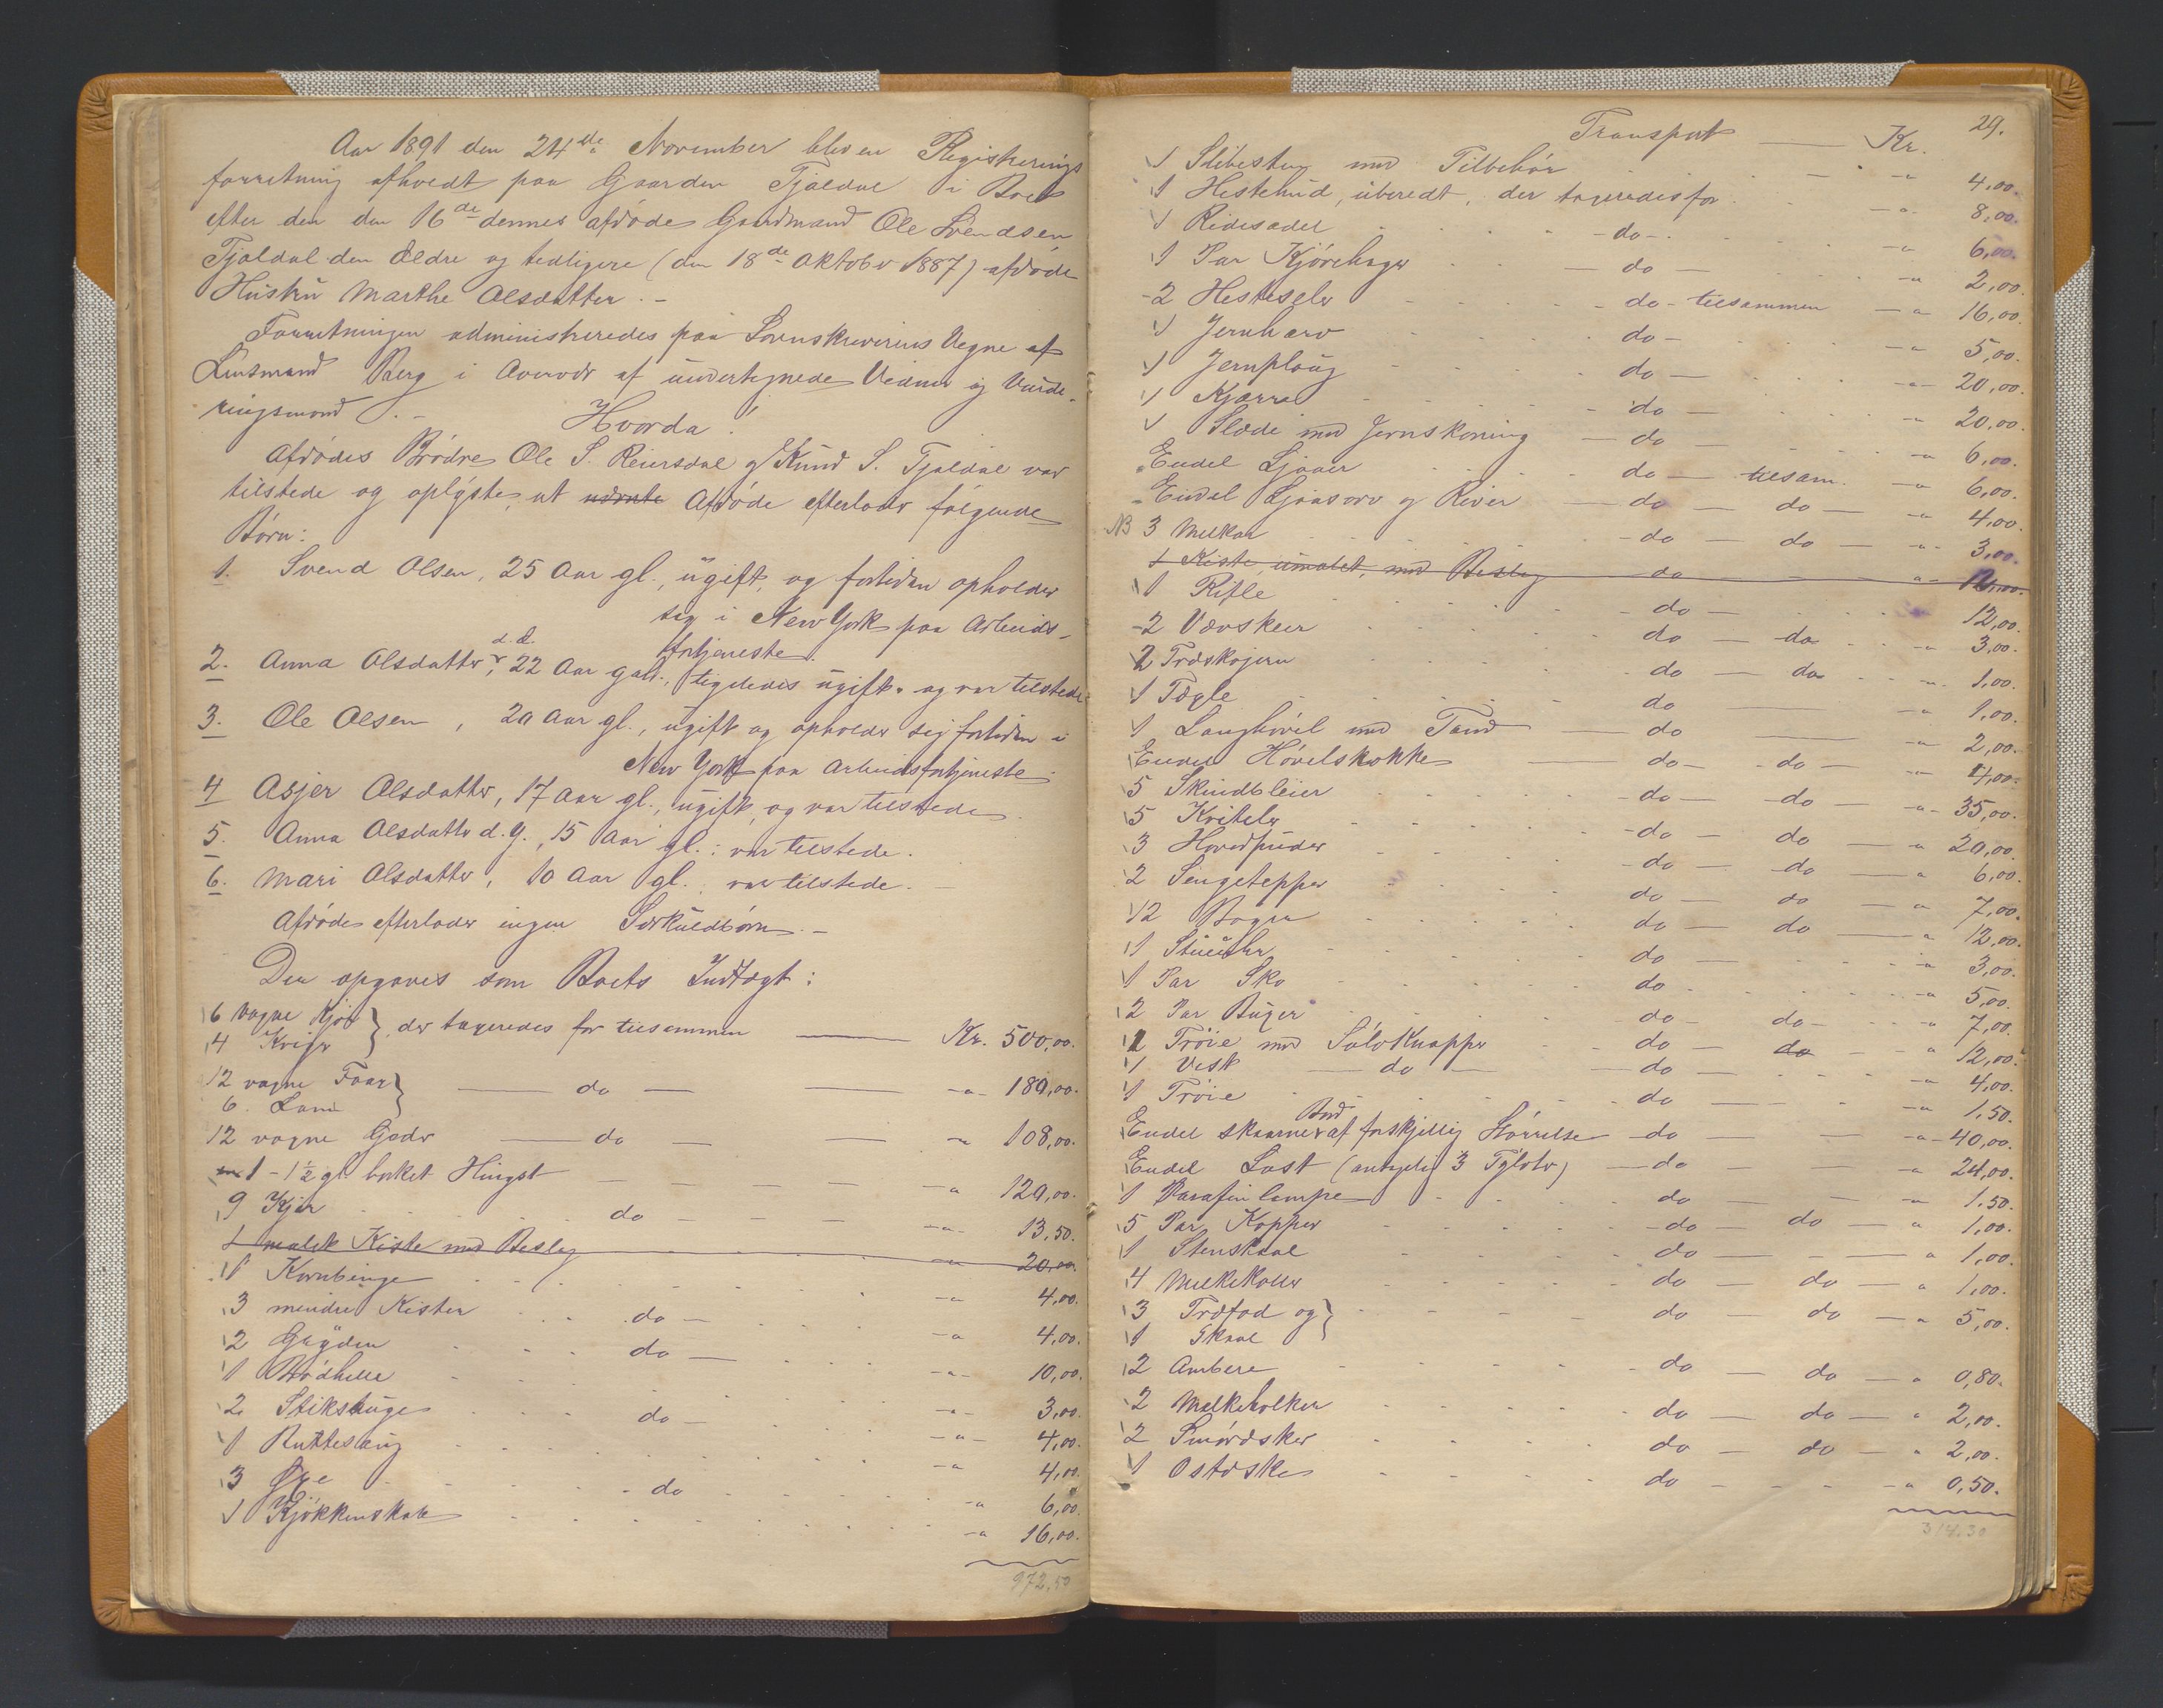 Aar 1891 den 24de November blev en Registrerings
forretning afholdt paa Gaarden Tjaldal i Boet
efter den den 16de dennes afdøde Gaardmand Ole Svendsen
Tjaldal den Ældre og tidligere (den 18de Oktober 1887) afdøde
Hustru Marthe Olsdatter. -
Forretningen administreredes paa Sorenskriverens Vegne af
Lensmand Berg i Overvær af undertegnede Vidner og Vurde-
ringsmænd. -
Hvorda!
Afdødes Brødre Ole S. Reiersdal og Knud S. Tjaldal var
tilstede og oplyste, at Afdøde efterlader følgende
Børn:
1. Svend Olsen, 25 Aar gl., ugift, og fortiden opholder
sig i New York paa Arbeids-
fortjeneste.
2. Anna Olsdatter d. Æ., 22 Aar gall., ligeledes ugift og var tilstede.
3. Ole Olsen, 20 Aar gl., ugift og opholder sig fortiden i
New York paa Arbeidsfortjeneste.
4 Asjer Olsdatter, 17 Aar gl., ugift, og var tilstede.
5. Anna Olsdatter d. y., 15 Aar gl.; var tilstede.
6. Mari Olsdatter, 10 Aar gl. var tilstede.
Afdøde efterlader ingen Særkuldbørn. -
Der opgaves som Boets Indtægt:
6 vogne Kjør
4 Kviger } der taxeredes for tilsammen — Kr. 500,00.
12 vogne Faar
6. Lam } — do — -"- 180,00.
12 vogne Geder — do — -"- 108,00.
1 - 1½ gl. borket Hingst -"- 120,00.
9 Kjør do -"- 13,50.
1 malet Kiste med Beslag -"- 20,00.
1 Kornbinge -"- 4,00.
3 mindre Kister do -"- 4,00.
2 Gryder do -"- 10,00.
1 Brødhelle -"- 3,00.
2 Stikstuge do -"- 4,00.
1 Ruttesaug -"- 4,00.
3 Øxe do -"- 6,00.
1 Kjøkkenskab -"- 16,00.
972,50
29.
Transport — Kr.
1 Slibesten med Tilbehør -"- 4,00.
1 Hestehud, uberedt, der taxeredes for -"- 8,00.
1 Ridesadel do -"- 6,00.
1 Par Kjørehager do -"- 2,00.
2 Hesteseler do - tilsammen -"- 16,00.
1 Jernharv do -"- 5,00.
1 Jernploug do -"- 20,00.
1 Kjærre do -"- 20,00.
1 Slæde med Jernskoning do -"- 6,00.
Endel Ljaaer do — tilsam. -"- 6,00.
Endel Ljaaorv og River do — do -"- 4,00.
NB 3 Melkar do — do -"- 3,00.
1 Kiste, umalet, med Beslag do -"- 12,00.
1 Rifle do — 12,00.
2 Vævskeer do — do -"- 3,00.
2 Træskojern do — do -"- 1,00.
1 Tægle do -"- 1,00.
1 Langhøvel med Tand do -"- 2,00.
Endel Høvelstokke do — do -"- 4,00.
5 Skindbleier do — do -"- 35,00.
5 Kviteler do — do -"- 20,00.
3 Hovedpuder do — do -"- 6,00.
2 Sengetepper do — do -"- 7,00.
12 Bøger do — do -"- 12,00.
1 Stueuhr do -"- 3,00.
1 Par Sko do -"- 5,00.
2 Par Buxer do — do -"- 7,00.
1 Trøie med Sølvknapper do — do -"- 12,00.
1 Vest — do — do -"- 4,00.
1 Trøie do -"- 1,50.
Endel skaarne Bord af forskjellig Størrelse do -"- 40,00.
Endel Last (antagelig 3 Tylvter) — do -"- 24,00.
1 Parafinlampe do -"- 1,50.
5 Par Kopper do — do -"- 1,00.
1 Stenskaal do -"- 1,00.
4 Melkekoller do — do -"- 1,00.
3 Træfad og
1 Skaal } do — do -"- 5,00.
2 Ambere do — do -"- 0,80.
2 Melkeholker do — do -"- 2,00.
2 Smøræsker do — do -"- 2,00.
1 Ostæske do -"- 0,50.
314.30